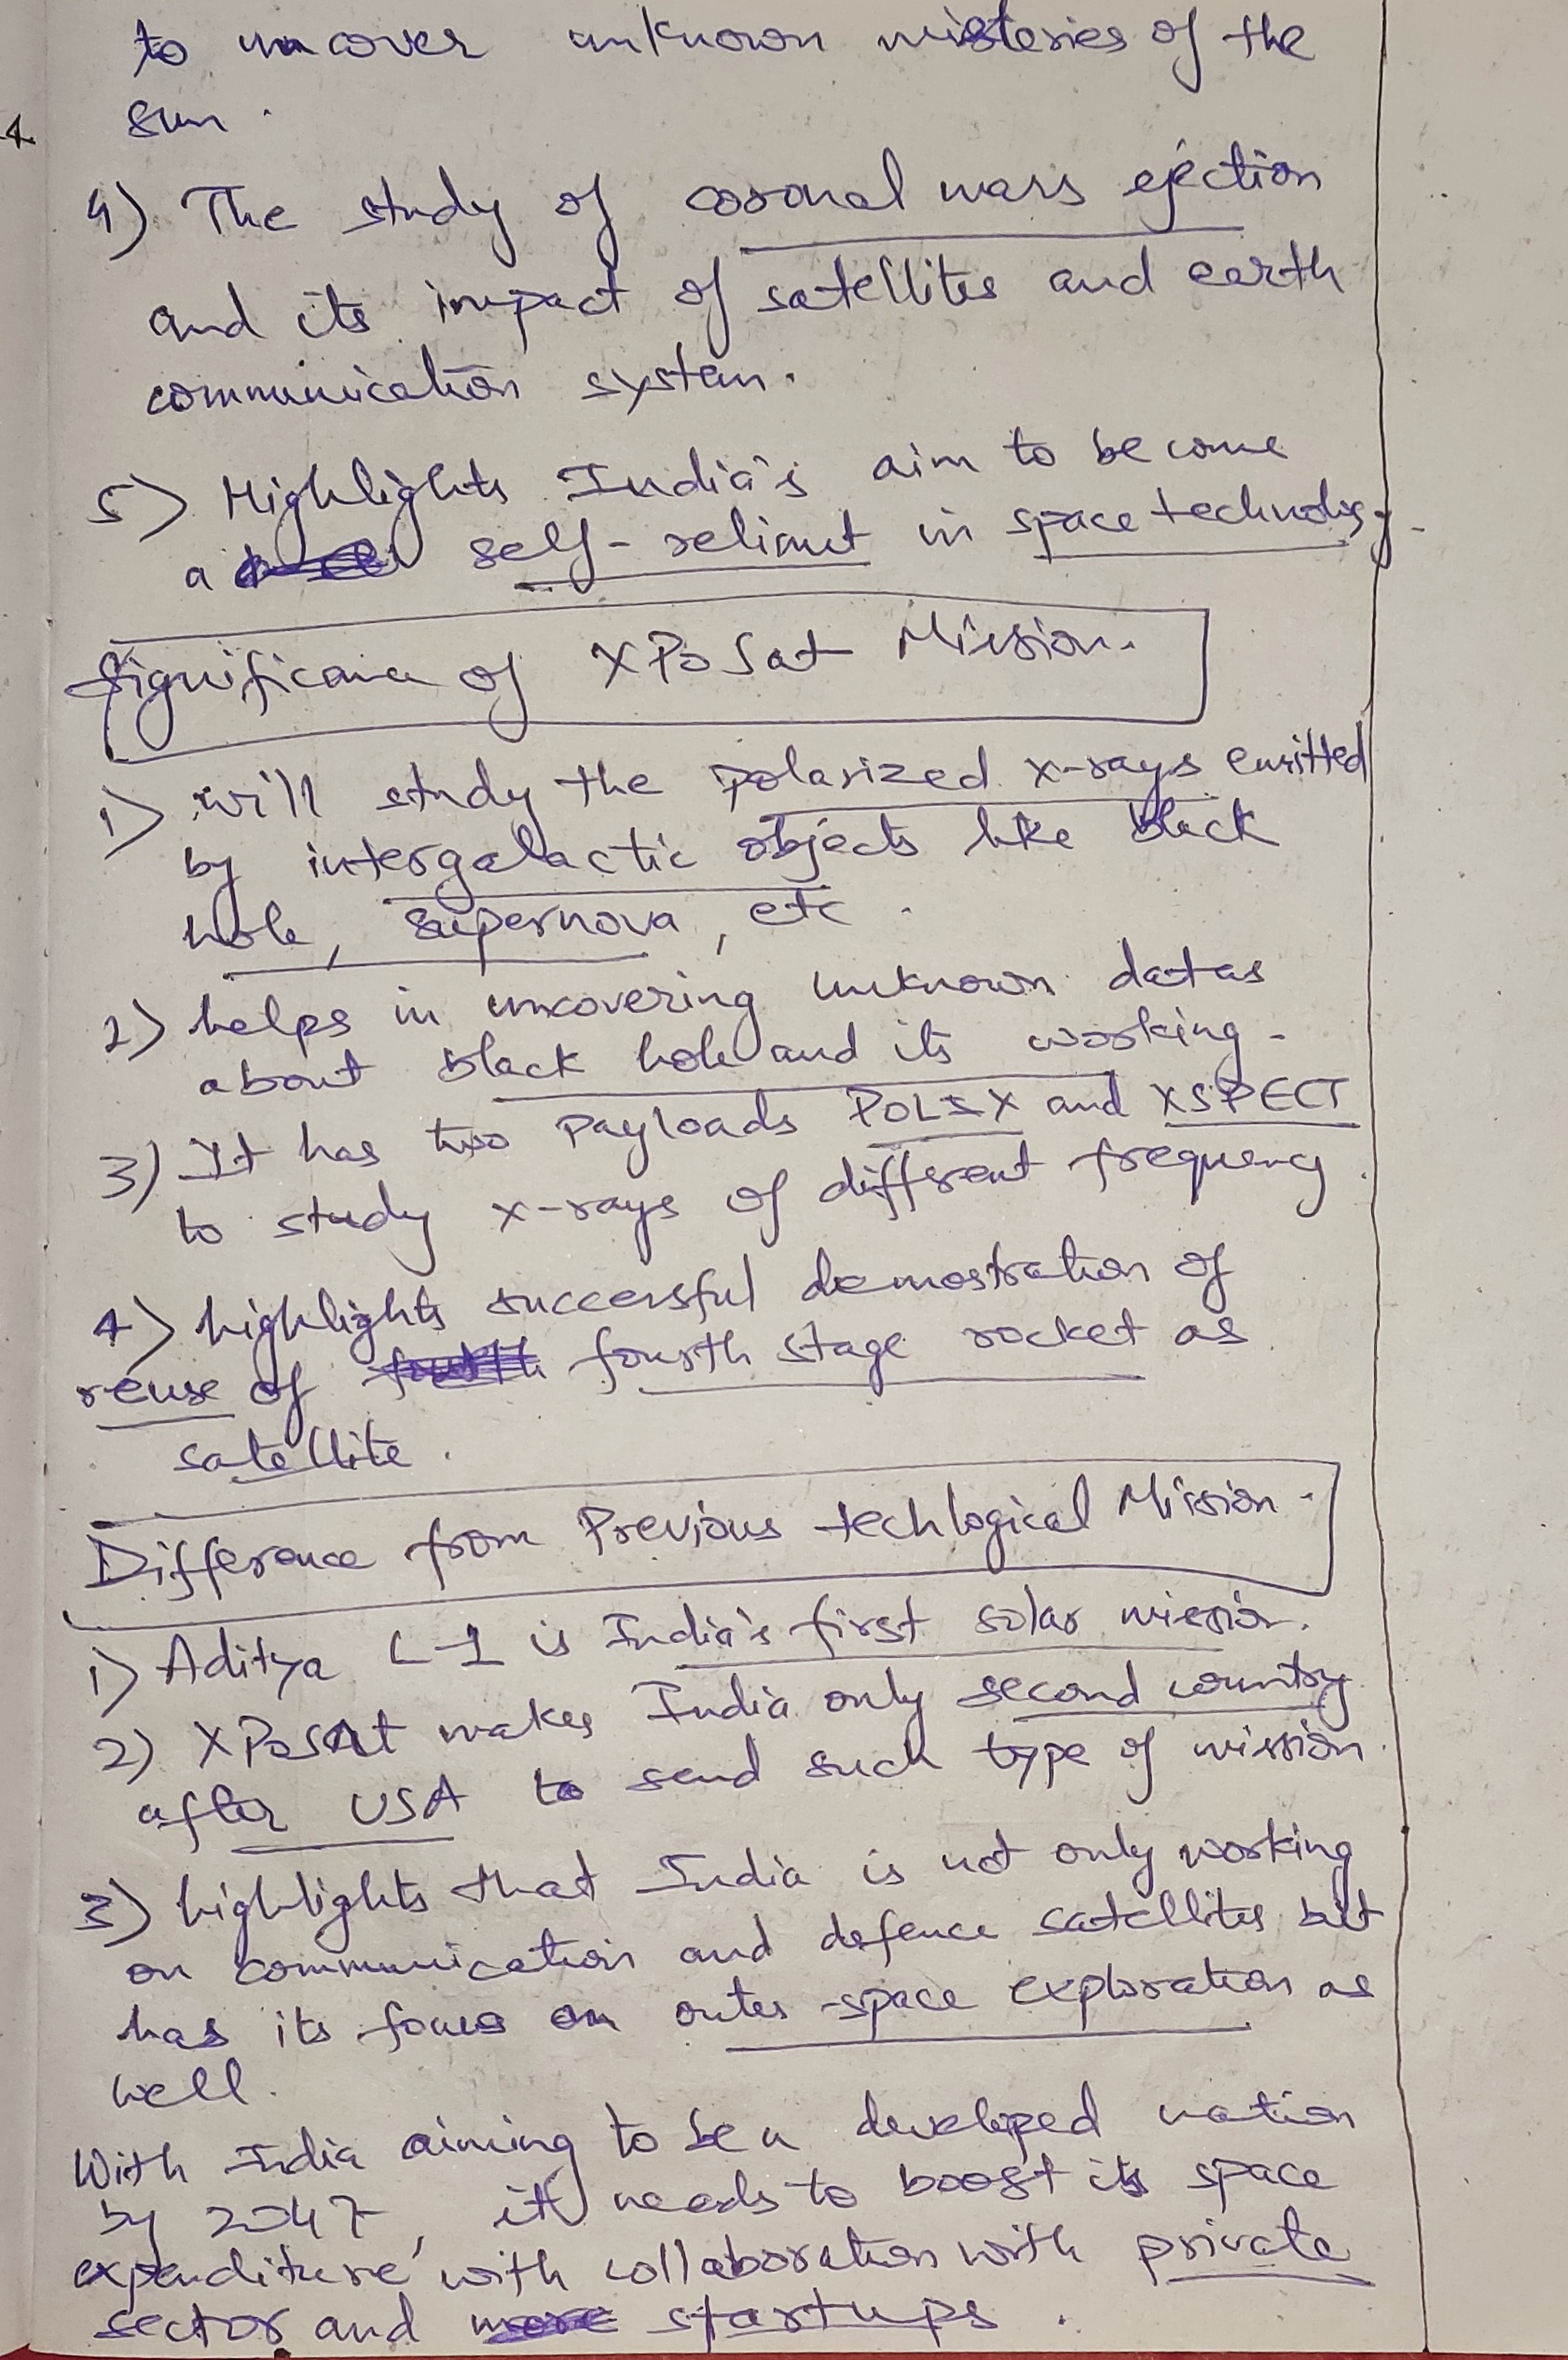 to uncover unknown misteries of the
sun.
4) The study of coronal mass ejection
and its impact of satellites and earth
communication system.
5) Highlights India's aim to become
a self-reliant in space technology.
Significance of XPoSat Mission.
1) will study the polarized x-rays emitted
by intergalactic objects like black
hole, supernova, etc.
2) helps in uncovering unknown datas
about black hole and its working.
3) It has two payloads POLIX and XSPECT
to study x-rays of different frequency.
4) highlights successful demostration of
reuse of fourth stage rocket as
satellite.
Difference from Previous techlogical Mission.
1) Aditya L-1 is India's first solar mission.
2) XPoSAt makes India only second country
after USA to send such type of mission.
3) highlights that India is not only working
on communication and defence satellites but
has its focus on outer-space exploration as
well.
With India aiming to be a developed nation
by 2047, it needs to boost its space
expenditure with collaboration with private
sector and startups.